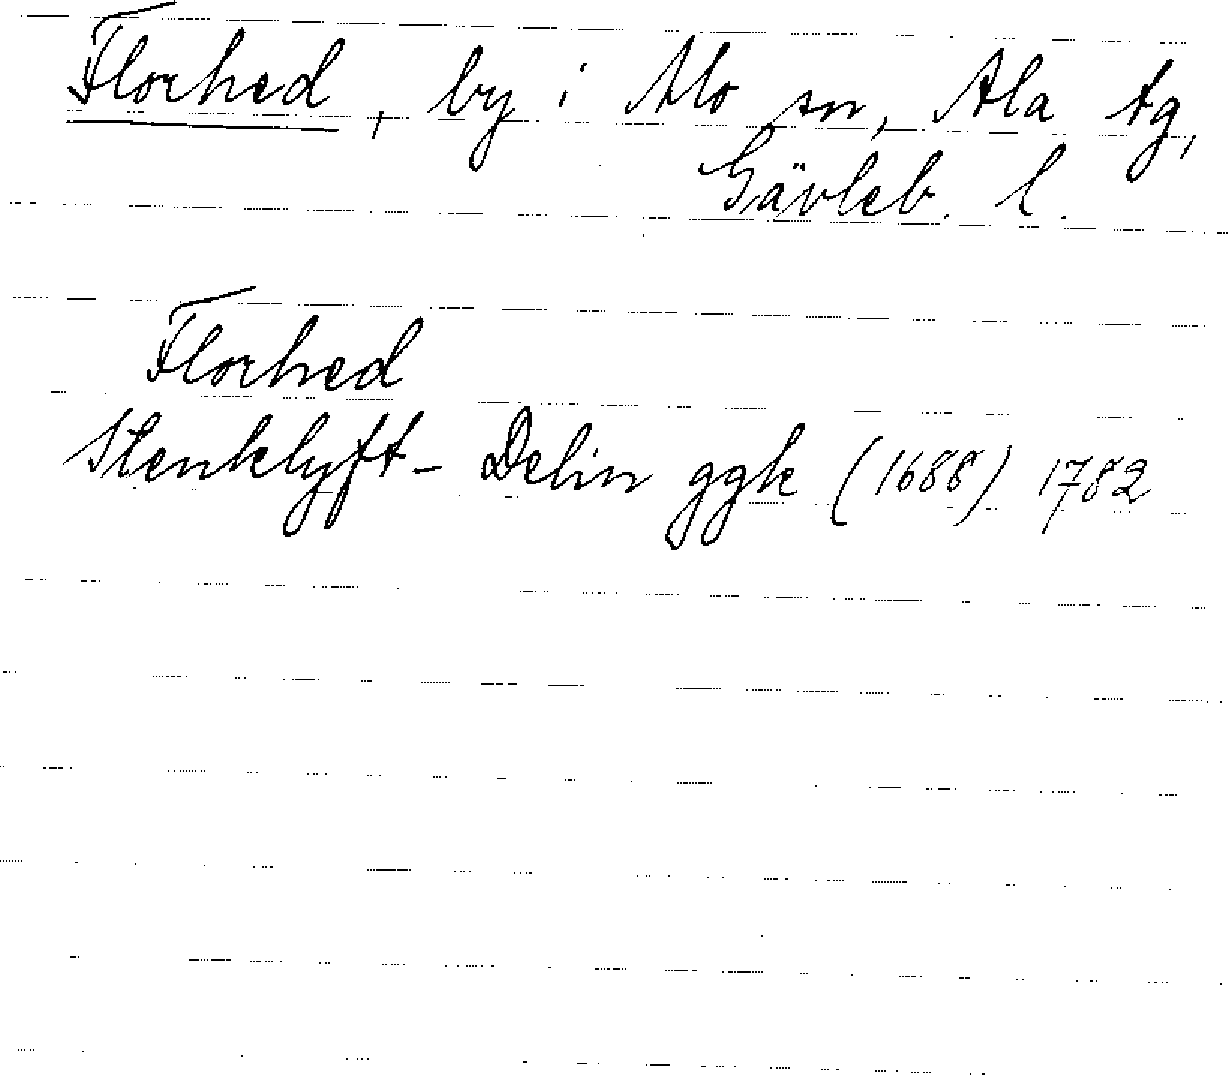 Florhed, by i Mo sn, Ala tg,
Gävleb. l.
Florhed
Stenklyft- Delin ggk (1688) 1782